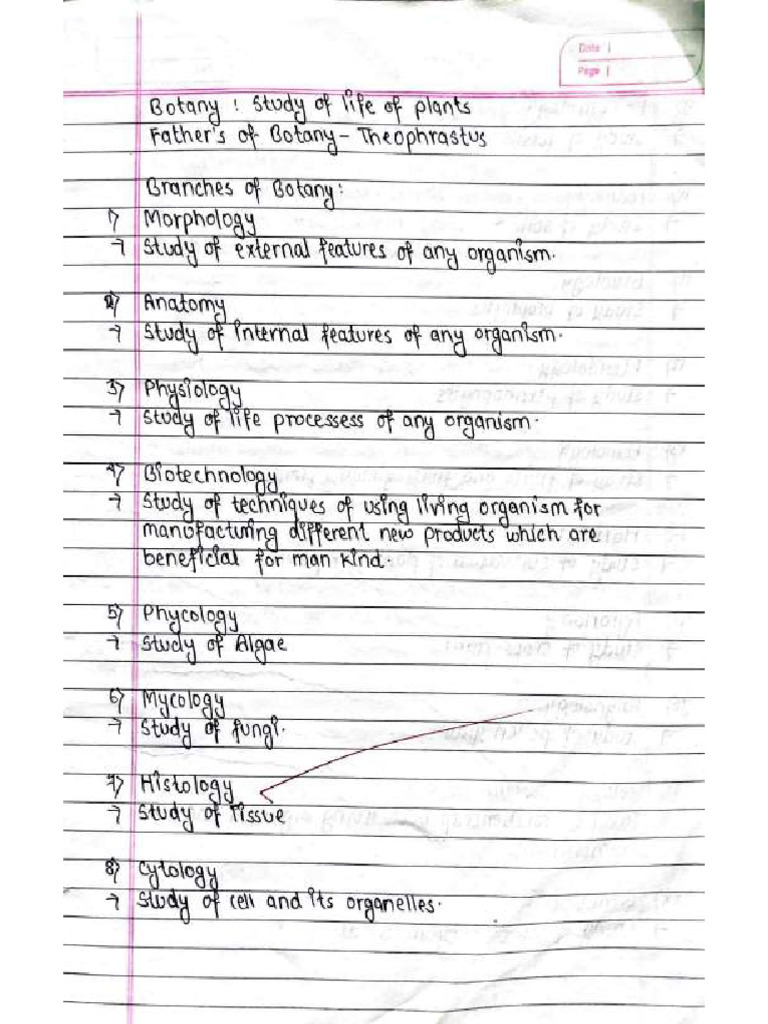 Date |
Page |
Botany : Study of life of plants
Father's of Botany - Theophrastus
Branches of Botany:
1) Morphology
→ Study of external features of any organism.
2) Anatomy
→ Study of internal features of any organism.
3) Physiology
→ Study of life processess of any organism.
4) Biotechnology
→ Study of techniques of using living organism for
manufacturing different new products which are
beneficial for man kind.
5) Phycology
→ Study of Algae
6) Mycology
→ Study of fungi.
7) Histology
→ Study of Tissue
8) Cytology
→ Study of cell and its organelles.